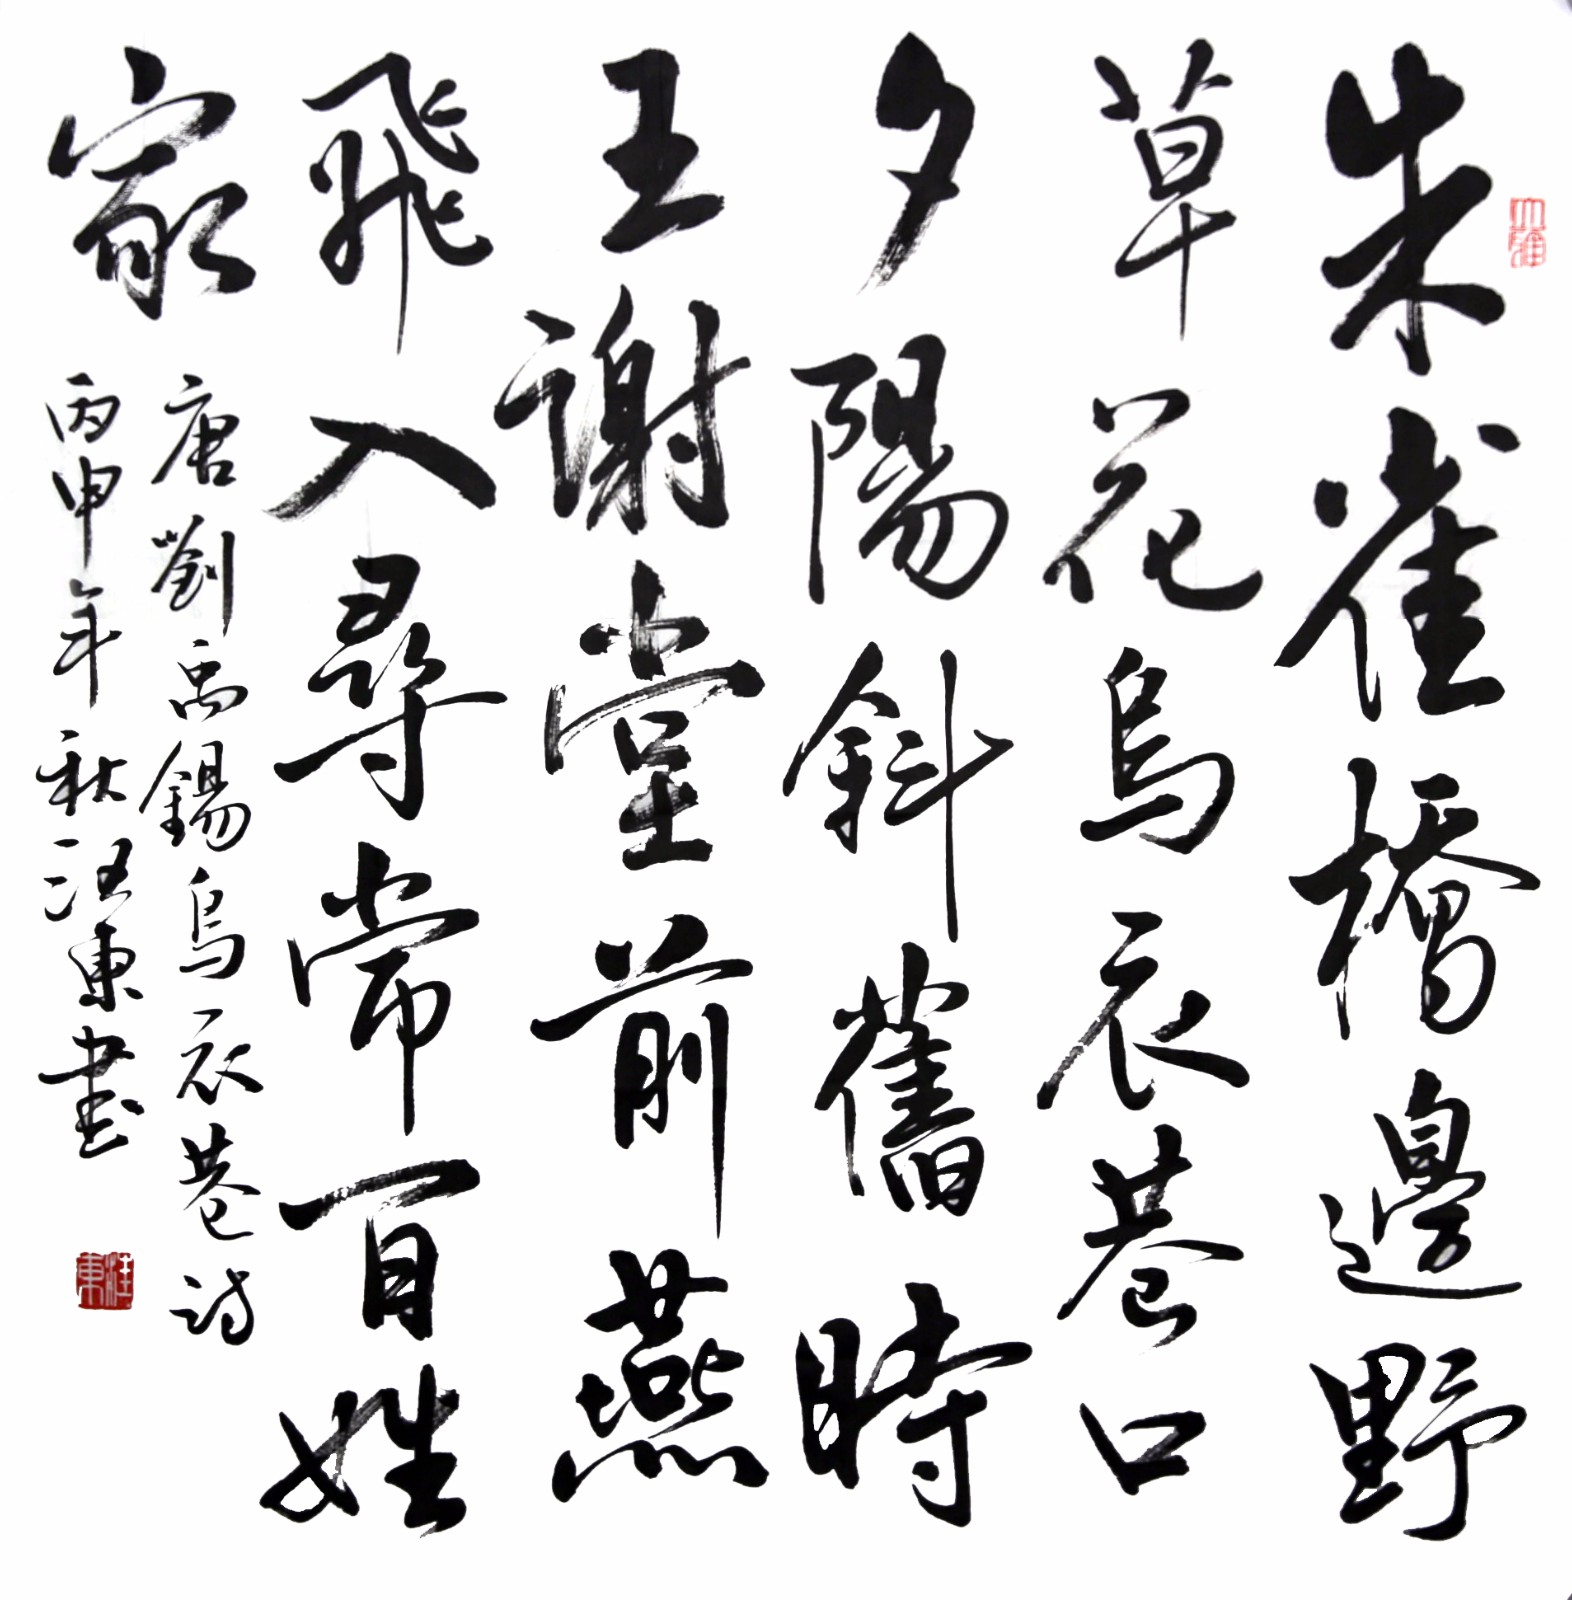 朱雀橋邊野
草花烏衣巷口
夕陽斜舊時
王謝堂前燕
飛入尋常百姓
家
唐劉禹錫烏衣巷詩
丙申年秋汪東書
汪東